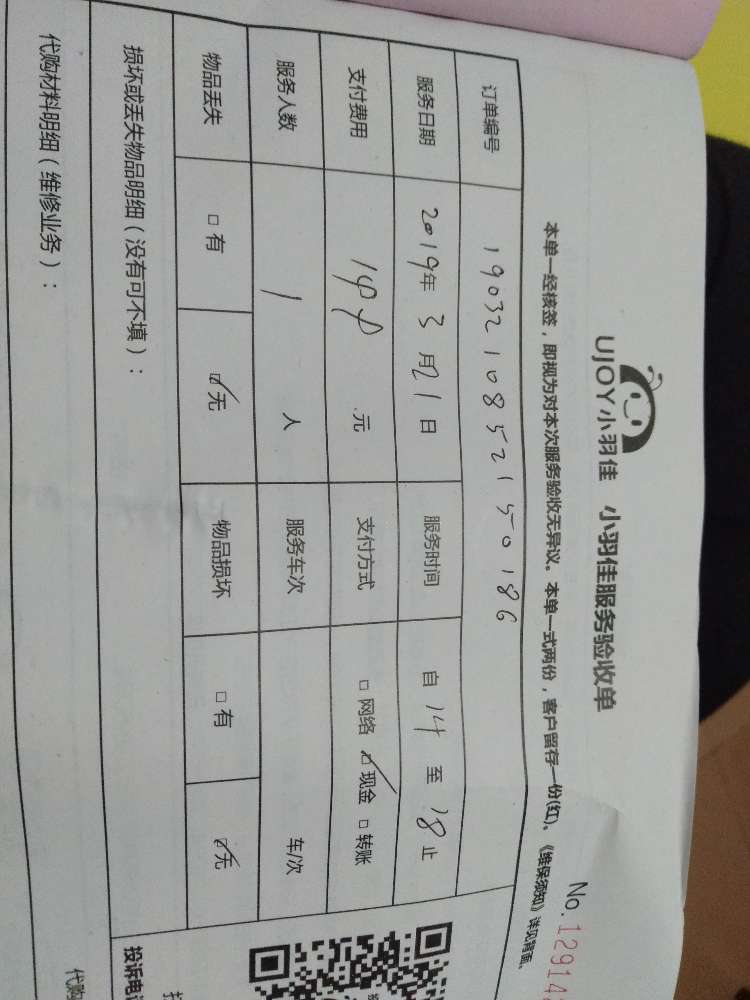 UJOY小羽佳 小羽佳服务验收单
No. 12914
本单一经核签，即视为对本次服务验收无异议。本单一式两份，客户留存一份(红)。《维保须知》详见背面。
订单编号 1903210852150186
服务日期 2019年3月21日 服务时间 自14至18止
支付费用 元 支付方式 □网络 ☑现金 □转账
服务人数 1人 服务车次 车/次
物品丢失 □有 ☑无 物品损坏 □有 ☑无
损坏或丢失物品明细（没有可不填）：
投诉电
代购材料明细（维修业务）：
代购